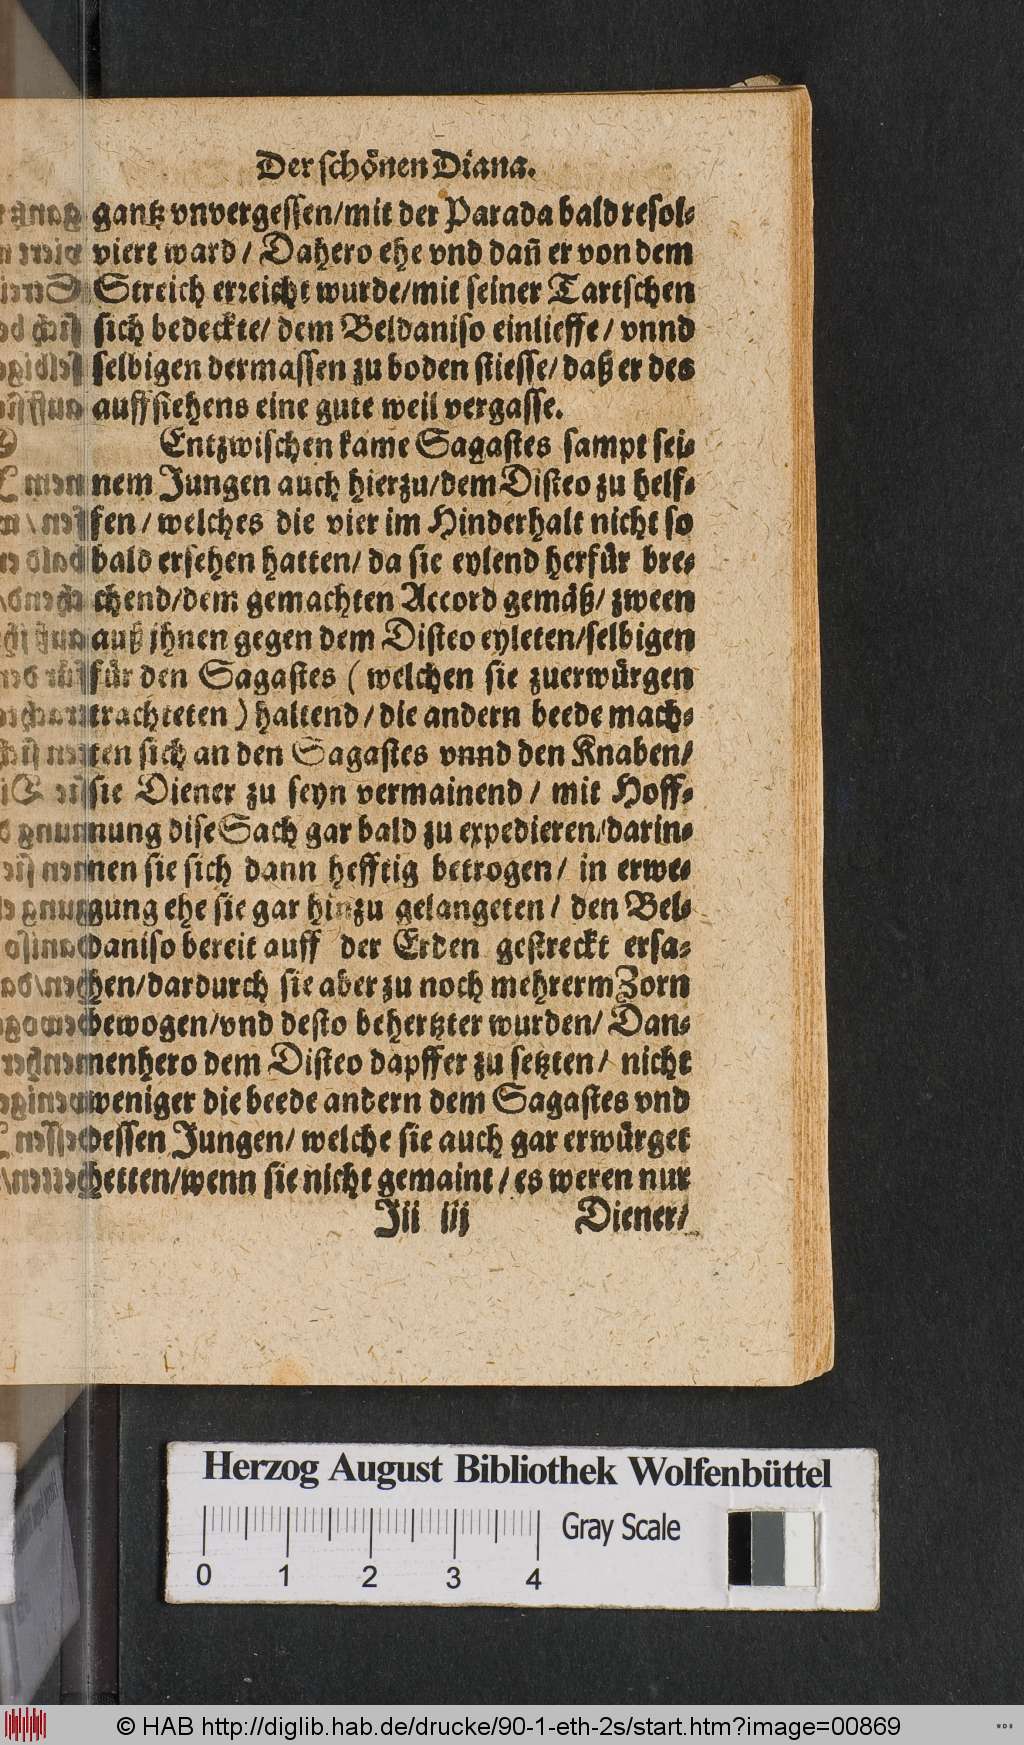 Der schönen Diana.
gantz vnvergessen/mit der Parada bald resol-
viert ward/ Dahero ehe vnd dañ er von dem
Streich erreicht wurde/mit seiner Tartschen
sich bedeckte/ dem Beldaniso einlieffe/ vnnd
selbigen dermassen zu boden stiesse/ daß er des
auffstehens eine gute weil vergasse.
Entzwischen kame Sagastes sampt sei-
nem Jungen auch hierzu/dem Disteo zu helf-
fen/ welches die vier im Hinderhalt nicht so
bald ersehen hatten/ da sie eylend herfür bre-
chend/dem gemachten Accord gemäß/ zween
auß jhnen gegen dem Disteo eyleten/selbigen
für den Sagastes ( welchen sie zuerwürgen
trachteten ) haltend/ die andern beede mach-
ten sich an den Sagastes vnnd den Knaben/
sie Diener zu seyn vermainend/ mit Hoff-
nung dise Sach gar bald zu expedieren/darin-
nen sie sich dann hefftig betrogen/ in erwe-
gung ehe sie gar hinzu gelangeten/ den Bel-
daniso bereit auff der Erden gestreckt ersa-
hen/dardurch sie aber zu noch mehrerm Zorn
bewogen/vnd desto behertzter wurden/ Dan-
menhero dem Disteo dapffer zu setzten/ nicht
weniger die beede andern dem Sagastes vnd
dessen Jungen/ welche sie auch gar erwürget
hetten/wenn sie nicht gemaint/ es weren nur
Jii iij Diener/
Herzog August Bibliothek Wolfenbüttel
Gray Scale
0 1 2 3 4
© HAB http://diglib.hab.de/drucke/90-1-eth-2s/start.htm?image=00869